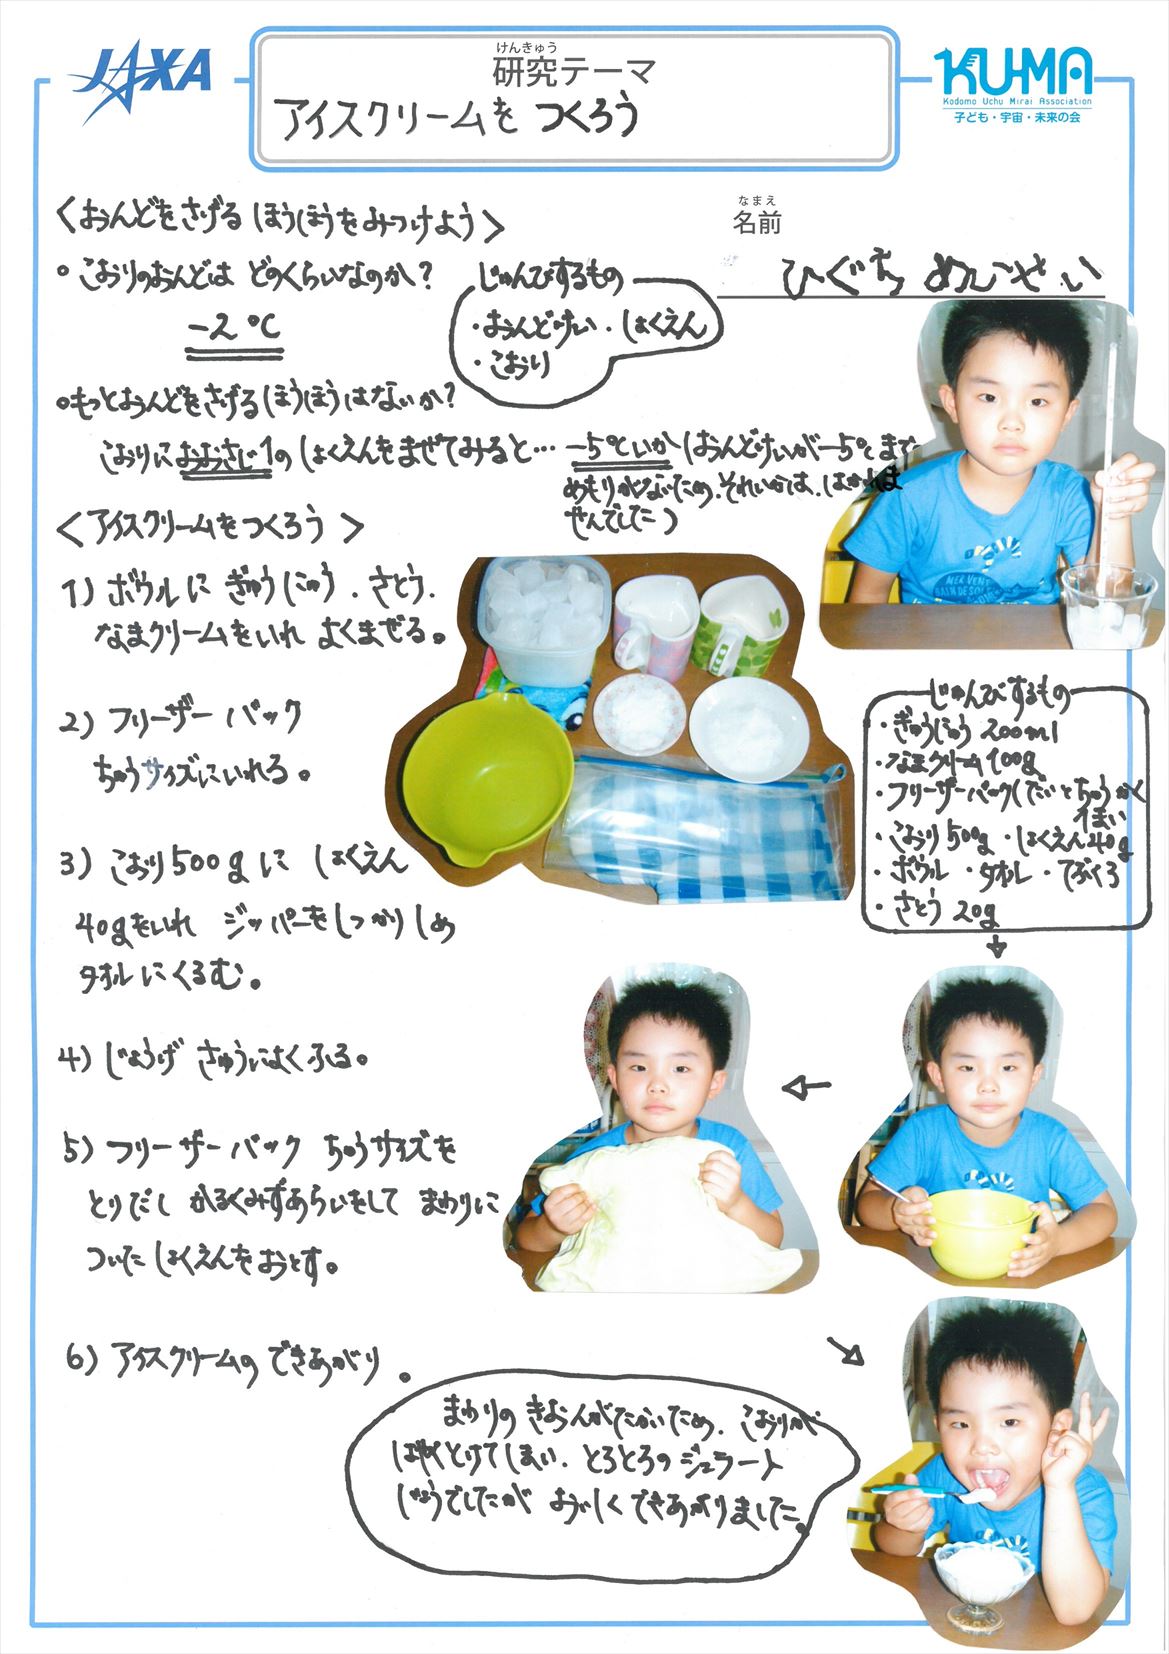 JAXA
けんきゅう
研究テーマ
アイスクリームを つくろう
KU-MA
Kodomo Uchu Mirai Association
子ども・宇宙・未来の会
なまえ
名前
ひぐち
せい
<おんどをさげる ほうほうをみつけよう>
・こおりのおんどは どのくらいなのか?
-2℃
じゅんびするもの
・おんどけい・しょくえん
・こおり
・もっとおんどをさげるほうほうはないか?
こおりにおおさじ1のしょくえんをまぜてみると… -5℃いか(おんどけいが-5℃まで
めもりがないため、それいかは、はかれま
せんでした)
<アイスクリームをつくろう>
1) ボウルに ぎゅうにゅう、さとう、
なまクリームをいれ よくまぜる。
2) フリーザーバック
ちゅうサイズにいれる。
3) こおり500gに しょくえん
40gをいれ ジッパーをしっかりしめ
タオルにくるむ。
4) じょうげ さゆうによくふる。
5) フリーザーバック ちゅうサイズを
とりだし かるくみずあらいをして まわりに
ついたしょくえんをおとす。
6) アイスクリームの できあがり。
じゅんびするもの
・ぎゅうにゅう 200ml
・なまクリーム100g
・フリーザーバック(だいとちゅうかく
1まい
・こおり500g ・しょくえん40g
・ボウル ・タオル ・てぶくろ
・さとう 20g
まわりの きおんがたかいため、こおりが
はやくとけてしまい、とろとろの ジェラート
じょうでしたが おいしく できあがりました。